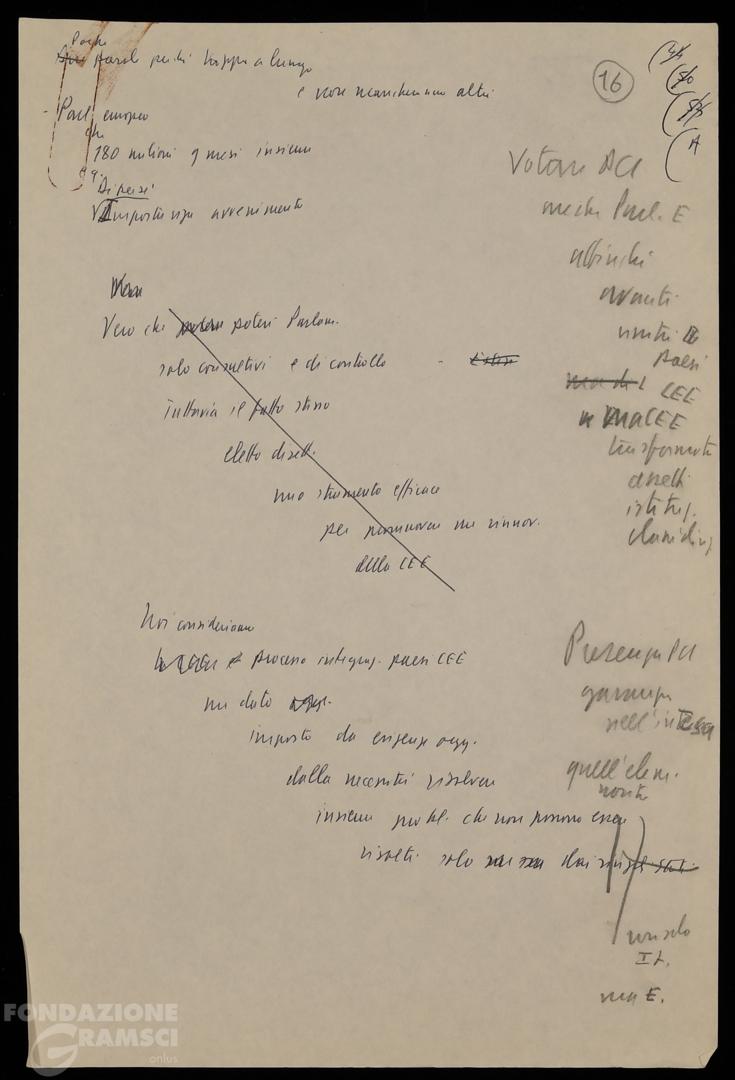 Poche
parole perché troppo a lungo
e non mancheranno altri
- Parl. europeo
che
180 milioni 9 paesi insieme
Dipersi
V Importanza avvenimento
Vero che potere poteri Parlam.
solo consultivi e di controllo -
tuttavia il fatto stesso
eletto dirett.
uno strumento efficace
per promuovere un rinnov.
della CEE
Noi consideriamo
processo integraz. paesi CEE
un dato ogg.
imposto da esigenze ogg.
dalla necessità risolvere
insieme probl. che non possono essere
risolti solo dai singoli stati
16
Votare PCI
anche Parl. E
affinché
avanti
unità
Paesi
CEE
CEE
trasformata
assetti
istituz.
Presenza PCI
garanzia
nell'intesa
quell'elem.
novità
non solo
It.
ma E.
FONDAZIONE
GRAMSCI
onlus